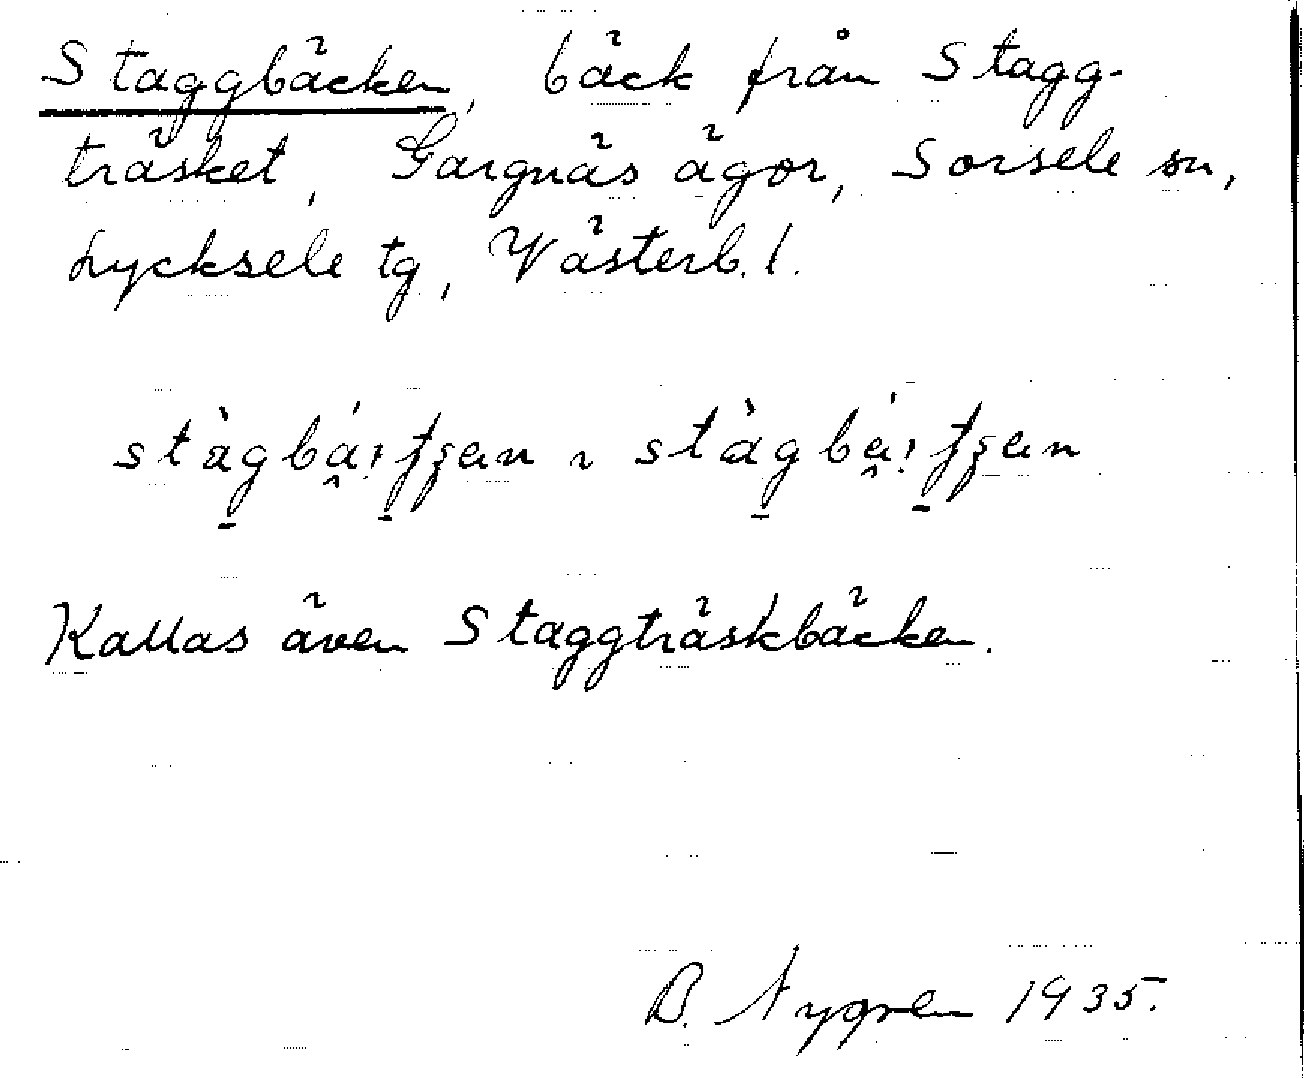 Staggbäcken, bäck från Stagg-
träsket, Gargnäs ägor, Sorsele sn,
Lycksele tg, Västerb. l.
Kallas även Staggträskbäcken.
B. Nygren 1935.